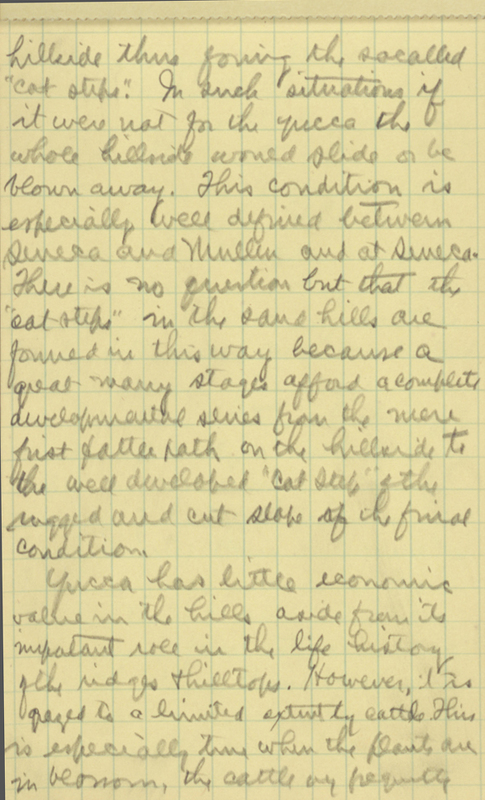 hillside thus forming the socalled
"cat steps". In such situations if
it were not for the yucca the
whole hillside would slide or be
blown away. This condition is
especially well defined between
Seneca and Mullen and at Seneca.
There is no question but that the
"cat steps" in the sand hills are
formed in this way because a
great many stages afford a complete
developmental series from the mere
first cattle path on the hillside to
the well developed "cat step" & the
rugged and cut slope of the final
condition.
Yucca has little economic
value in the hills aside from its
important role in the life history
of the ridges & hilltops. However, it is
grazed to a limited extent by cattle. This
is especially true when the plants are
in blossom, the cattle